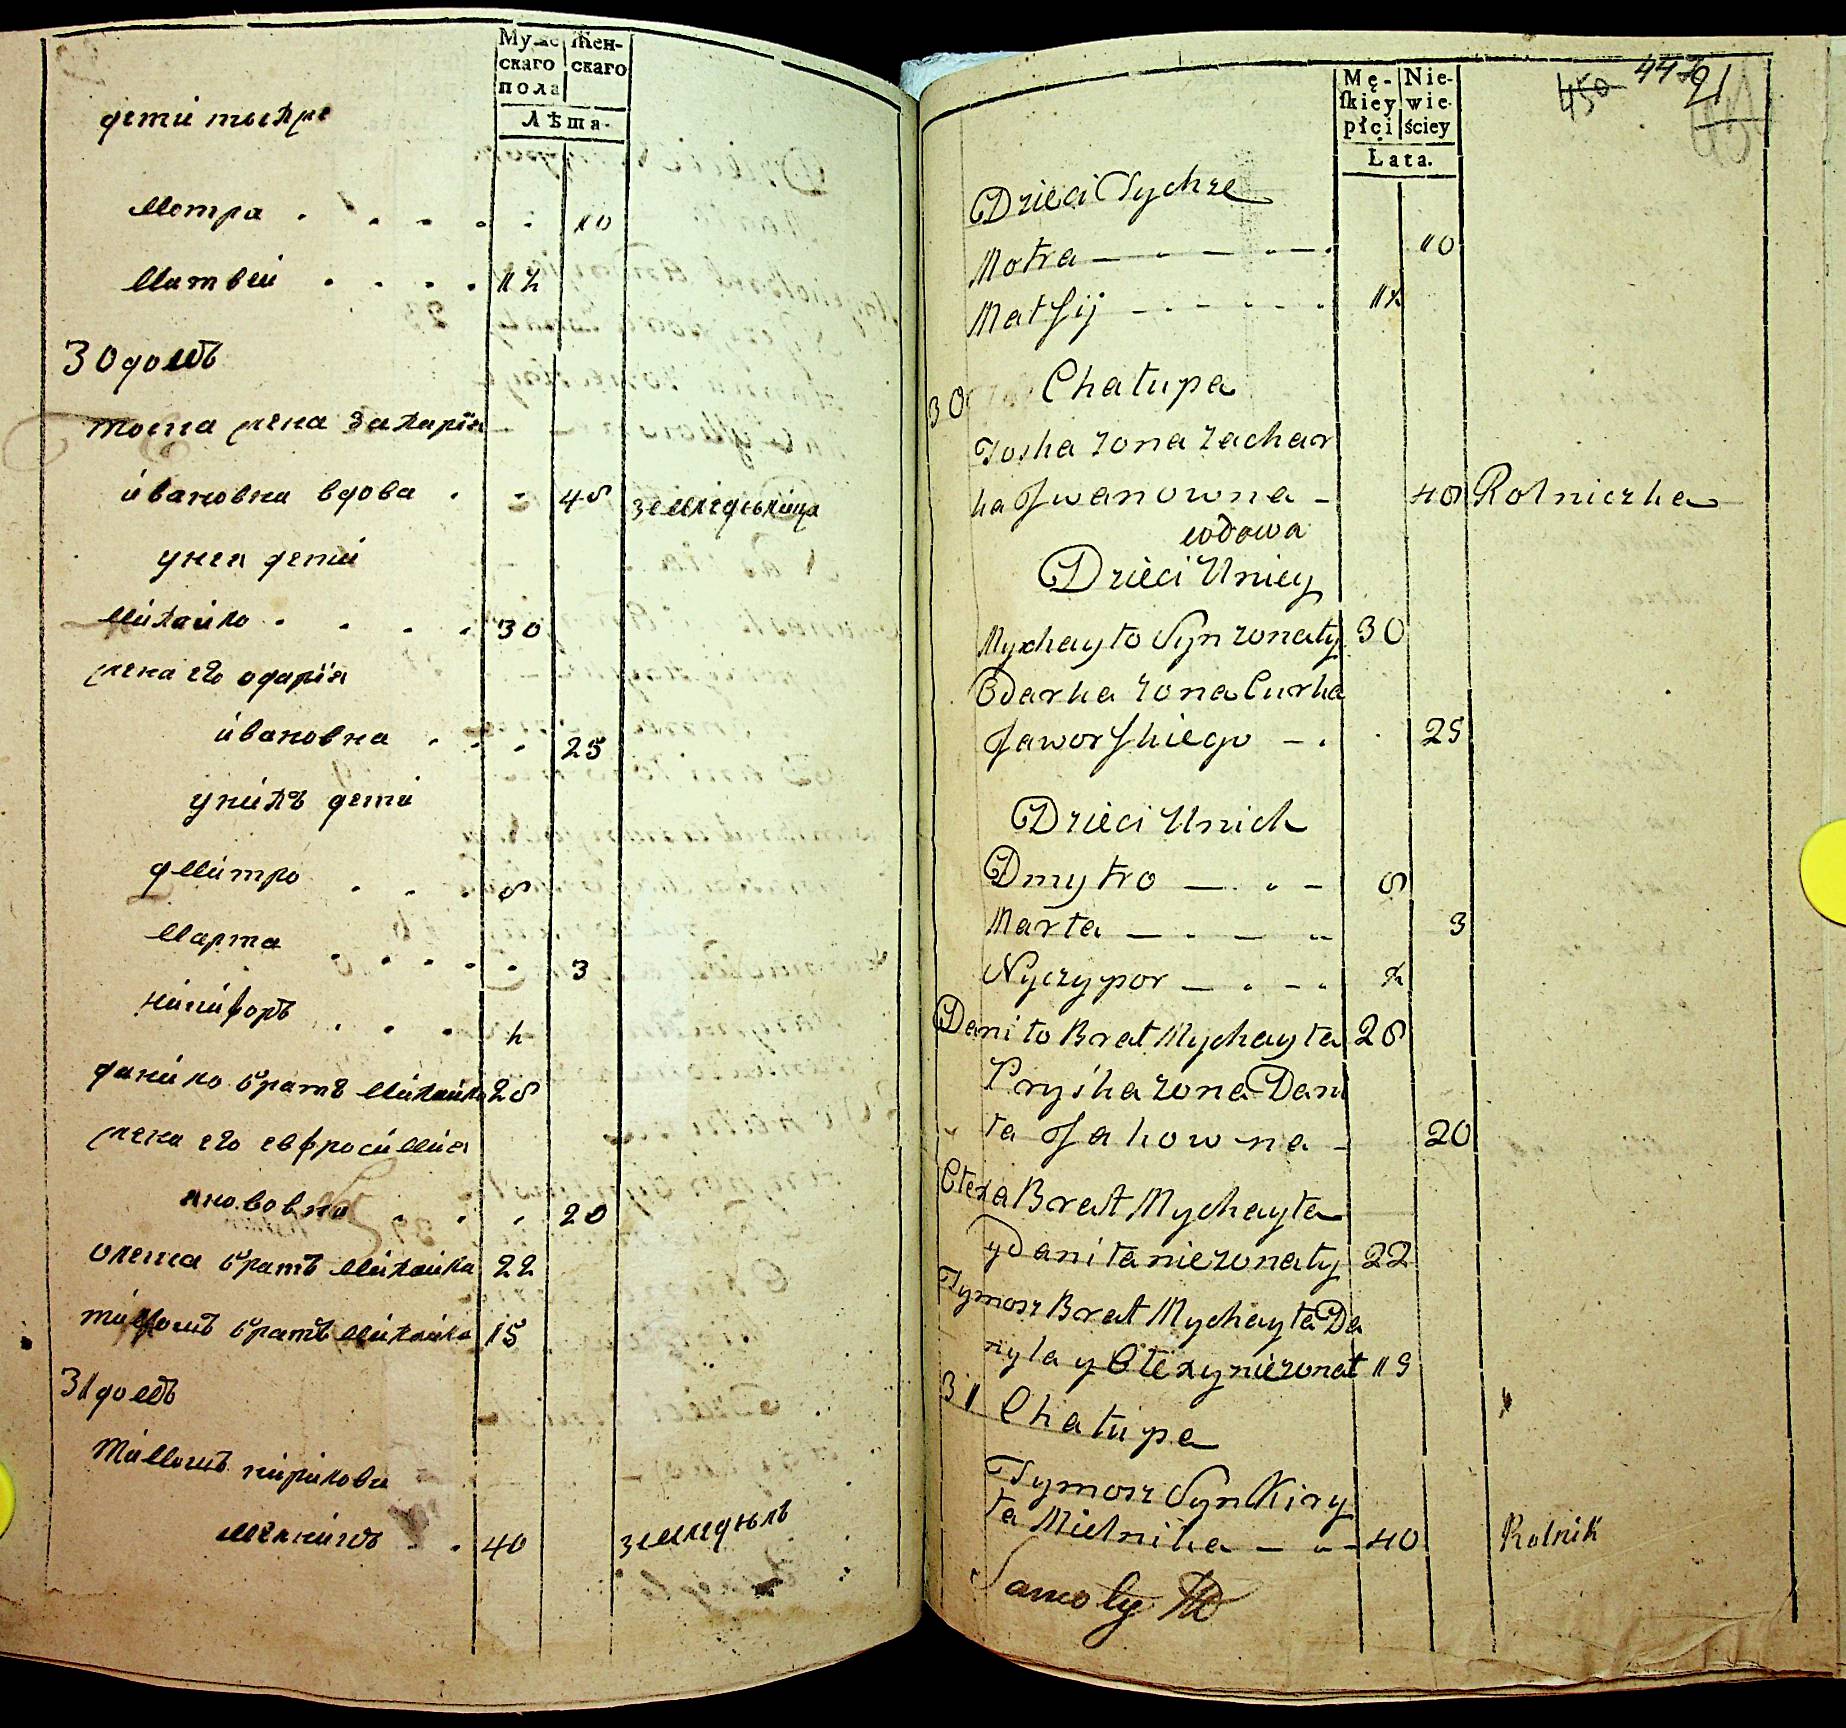 Муже Жен-
скаго скаго
пола
Лѣта.
дети тыхре
Мотра . . . . . 10
Матвій . . . . 12
30 домъ
тоска жена Захарія
ивановна вдова . - 48 земледѣліца
у нея дети
Міхайло . . . . 30
жена его одарія
ивановна . . . 25
у ніхъ деті
дмітро . . . 8
Марта . . . . . 3
нікіфоръ . . . 2
данило братъ Міхайла 28
жена его евфросімія
якововна . . . 20
олекса братъ Міхайла 22
тімошъ братъ Міхайла 15
31 домъ
Тімошъ кірилови
мелникъ . . 40 земледѣлъ
450 447 91
Mę- Nie-
ſkiey wie-
płci ściey
Łata.
Dzieci Tychże
Motra 10
Matſij 12
30 Chałupa
Joska żona Zachar
ka Jwanowna - 48 Rolniczka
wdowa
Dzieci Uniey
Mychayło Syn żonaty 30
Odarka żona Curka
Jaworſkiego 25
Dzieci Unich
Dmytro 8
Marta 3
Nyczypor 2
Daniło Brat Mychayła 28
Pryśka żona Dani
ła Jakowna 20
Olexa Brat Mychayła
y Daniła nieżonaty 22
Tymosz Brat Mychayła Da
nyla y Olexy nieżonat 15
31 Chałupa
Tymosz Syn Kiry
ła Mielnika 40 Rolnik